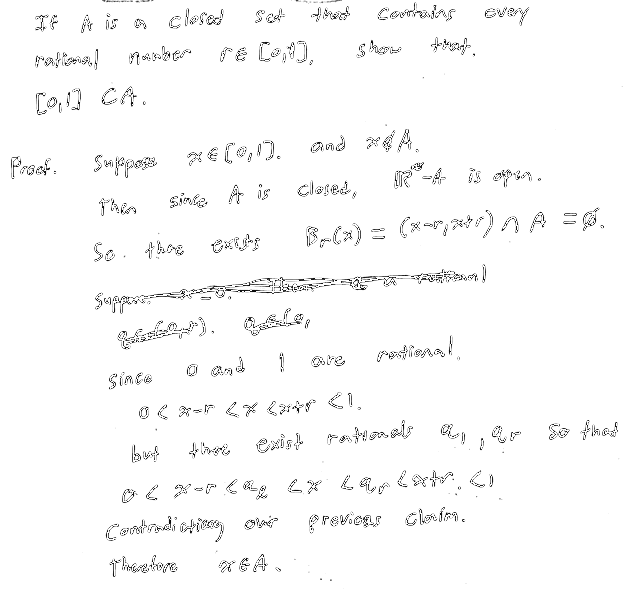 If A is a closed set that contains every
rational number r ∈ [0,1], show that.
[0,1] ⊂ A.
Proof. Suppose x ∈ [0,1]. and x ∉ A.
Then since A is closed, ℝ - A is open.
So there exists B_r(x) = (x-r, x+r) ∩ A = ∅.
Suppose x=0. a rational
since 0 and 1 are rational.
0 < x-r < x < x+r < 1.
but there exist rationals q_l, q_r so that
0 < x-r < q_l < x < q_r < x+r. < 1
Contradicting our previous claim.
Therefore x ∈ A.